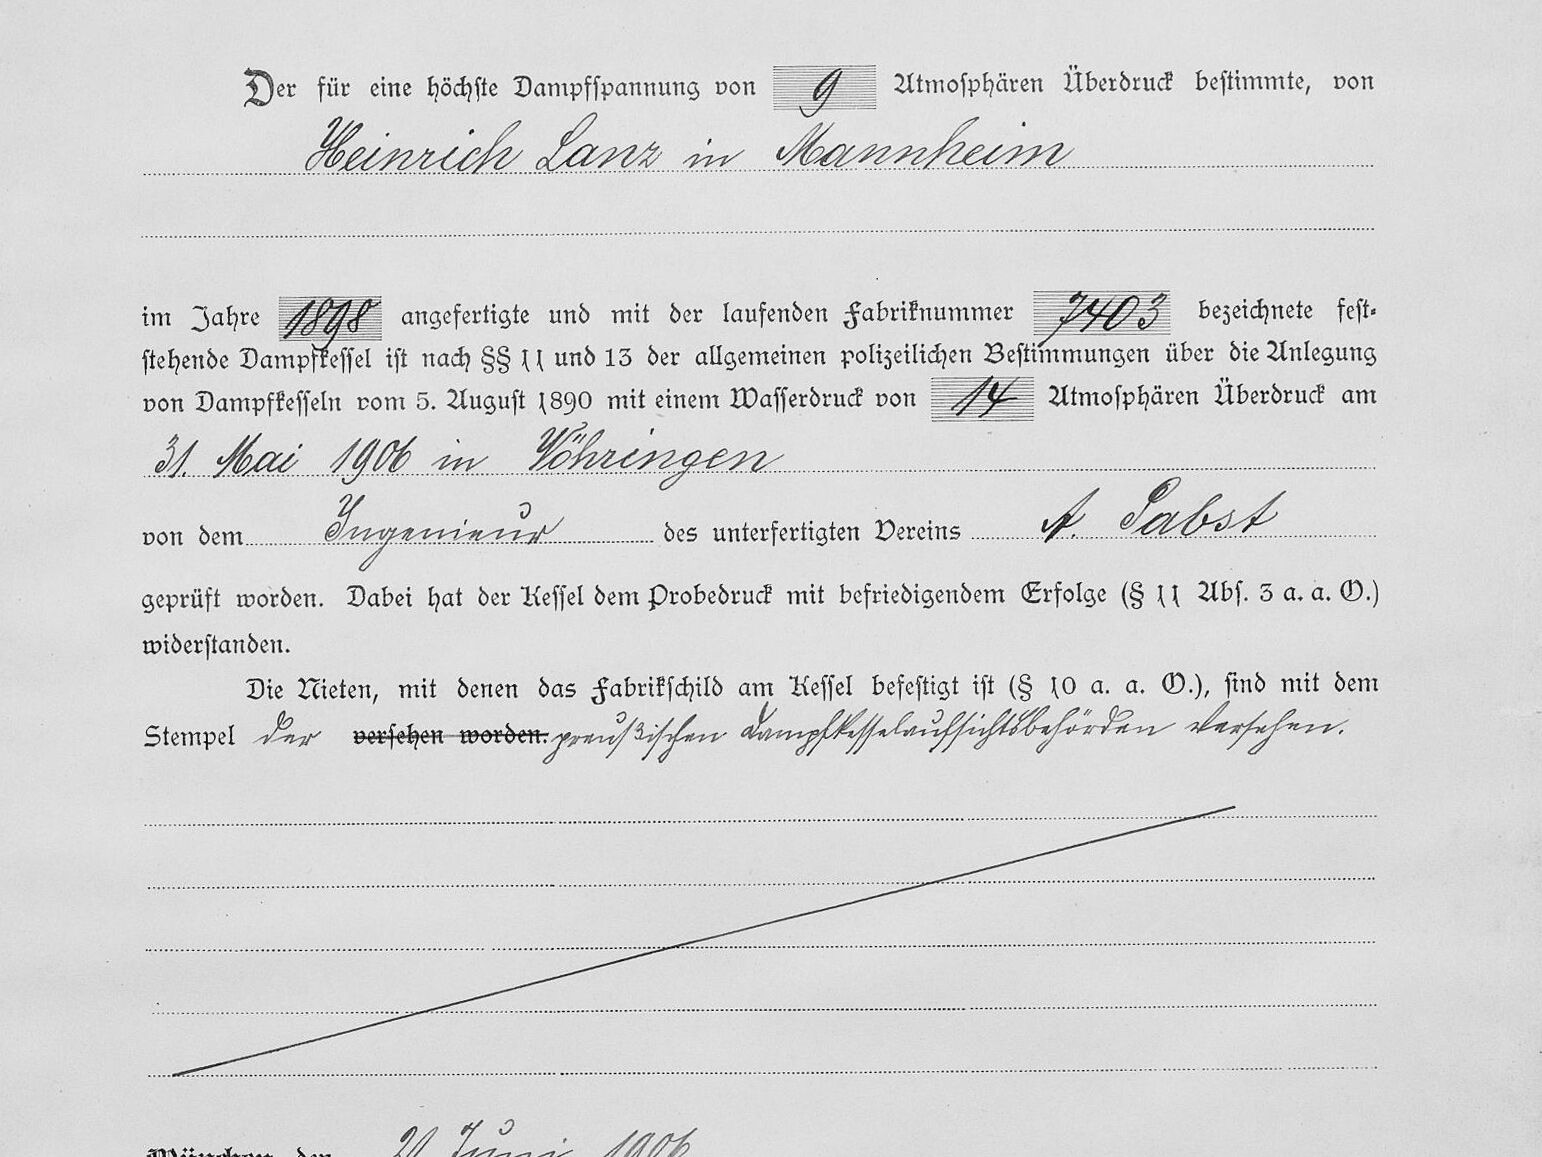 Der für eine höchste Dampfspannung von 9 Atmosphären Überdruck bestimmte, von
Heinrich Lanz in Mannheim
im Jahre 1898 angefertigte und mit der laufenden Fabriknummer 7403 bezeichnete fest-
stehende Dampfkessel ist nach §§ 11 und 13 der allgemeinen polizeilichen Bestimmungen über die Anlegung
von Dampfkesseln vom 5. August 1890 mit einem Wasserdruck von 14 Atmosphären Überdruck am
31. Mai 1906 in Vöhringen
von dem Ingenieur des unterfertigten Vereins A. Pabst
geprüft worden. Dabei hat der Kessel dem Probedruck mit befriedigendem Erfolge (§ 11 Abs. 3 a. a. O.)
widerstanden.
Die Nieten, mit denen das Fabrikschild am Kessel befestigt ist (§ 10 a. a. O.), sind mit dem
Stempel der versehen worden. preußischen Dampfkesselaufsichtsbehörden versehen.
München den Juni 1906